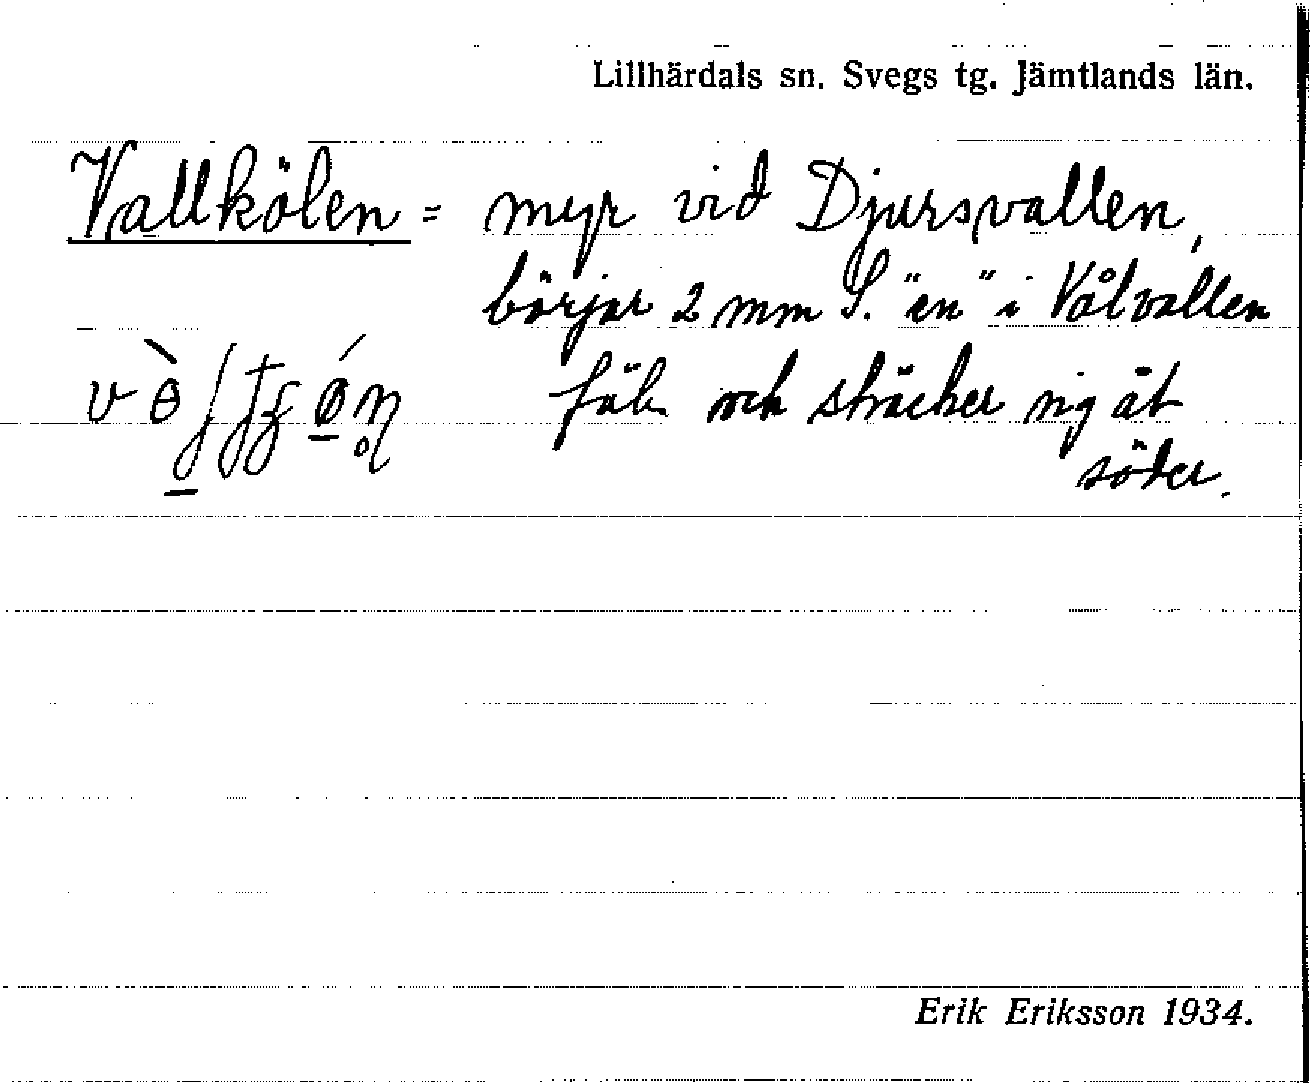 Lillhärdals sn. Svegs tg. Jämtlands län.
Vallkölen = myr vid Djursvallen,
börjar 2 mm S. "en" i Vålvallen
fäb. och sträcker sig åt
söder.
Erik Eriksson 1934.